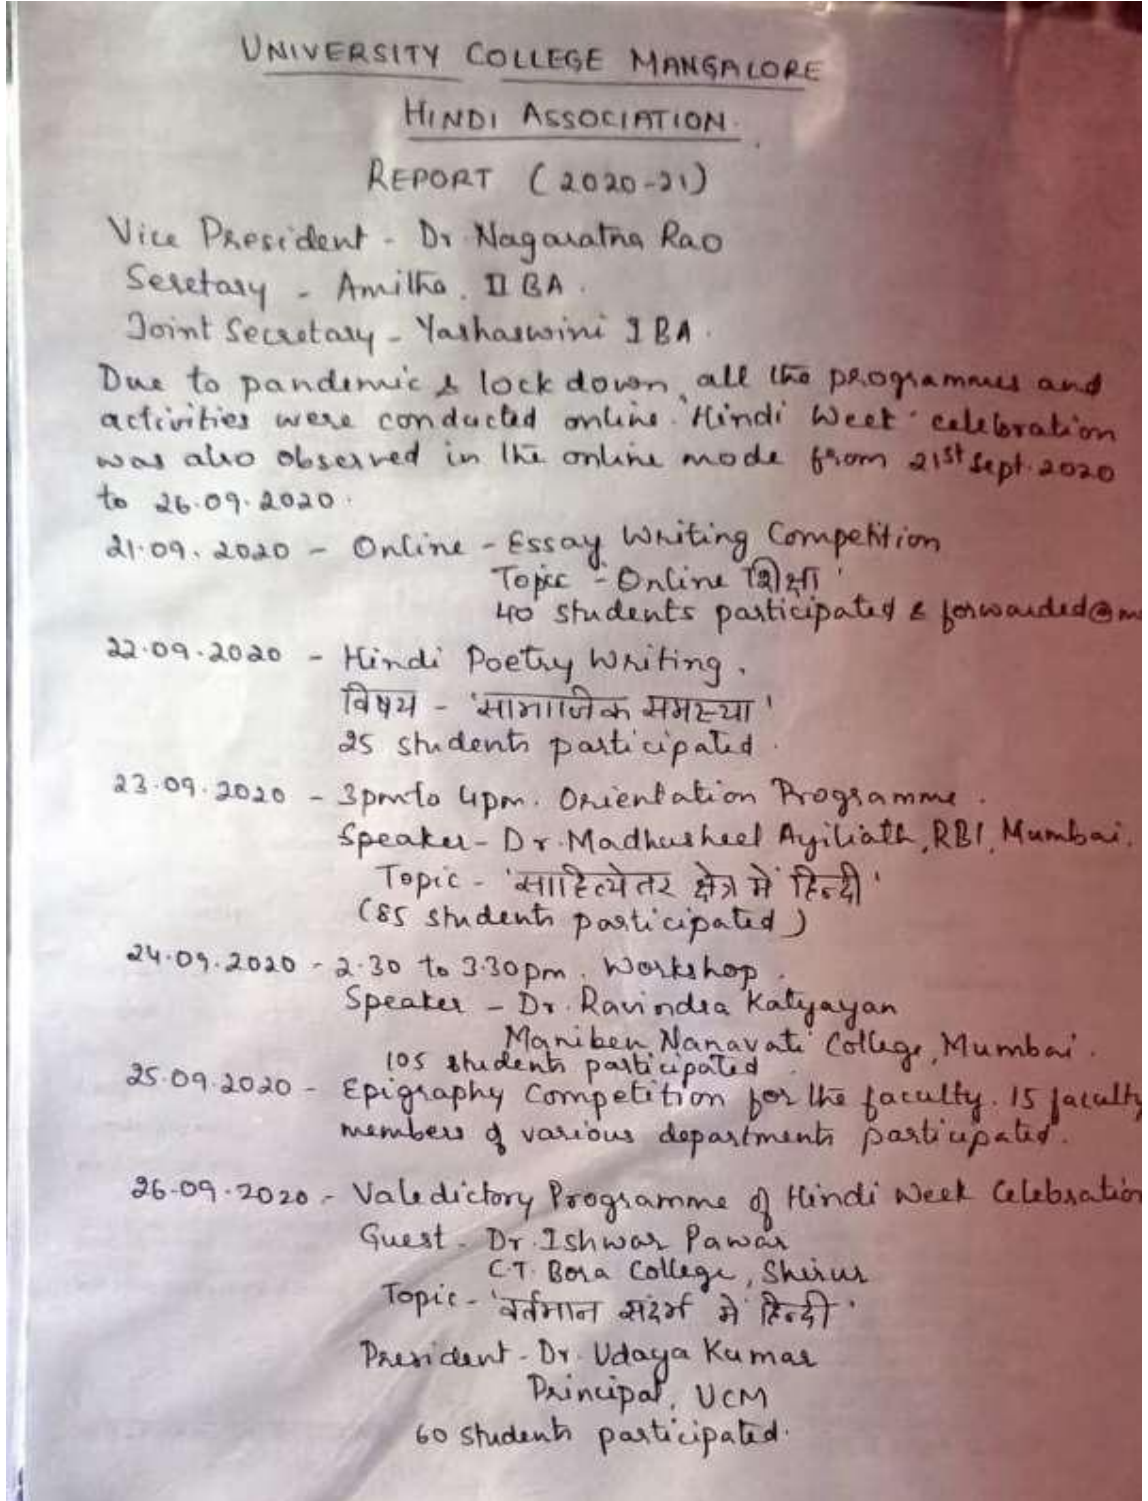 UNIVERSITY COLLEGE MANGALORE
HINDI ASSOCIATION.
REPORT (2020-21)
Vice President - Dr. Nagaratna Rao
Seretary - Amitha. II BA.
Joint Secretary - Yashaswini I BA.
Due to pandemic & lock down, all the programmes and
activities were conducted online. 'Hindi Week' celebration
was also observed in the online mode from 21st Sept. 2020
to 26.09.2020.
21.09.2020 - Online - Essay Writing Competition
Topic - Online शिक्षा'
40 students participated & forwarded@
22.09.2020 - Hindi Poetry Writing.
विषय - 'सामाजिक समस्या'
25 students participated.
23.09.2020 - 3pm to 4pm. Orientation Programme.
Speaker - Dr. Madhusheel Ayiliath, RBI, Mumbai.
Topic - 'साहित्येतर क्षेत्र में हिन्दी'
(85 students participated)
24.09.2020 - 2.30 to 3.30pm. Workshop.
Speaker - Dr. Ravindra Katyayan
Maniben Nanavati College, Mumbai.
105 students participated
25.09.2020 - Epigraphy Competition for the faculty. 15 faculty
members of various departments participated.
26.09.2020 - Valedictory Programme of Hindi Week Celebration
Guest - Dr. Ishwar Pawar
C.T. Bora College, Shirur
Topic - 'वर्तमान संदर्भ में हिन्दी'
President - Dr. Udaya Kumar
Principal, UCM
60 students participated.